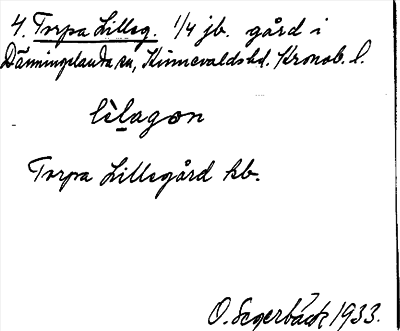 4. Torpa Lilleg. 1/4 jb. gård i
Dänningelanda sn, Kinnevaldshd. Kronob. l.
lìlagon
Torpa Lillegård kb.
O. Segerbäck 1933.